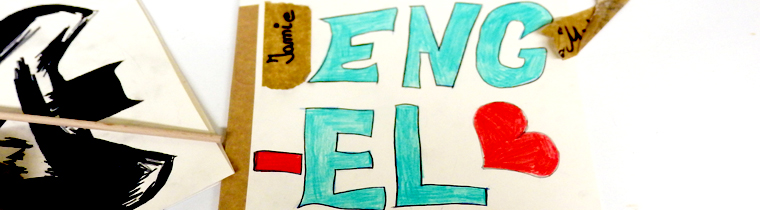 Jamie
ENG
-EL